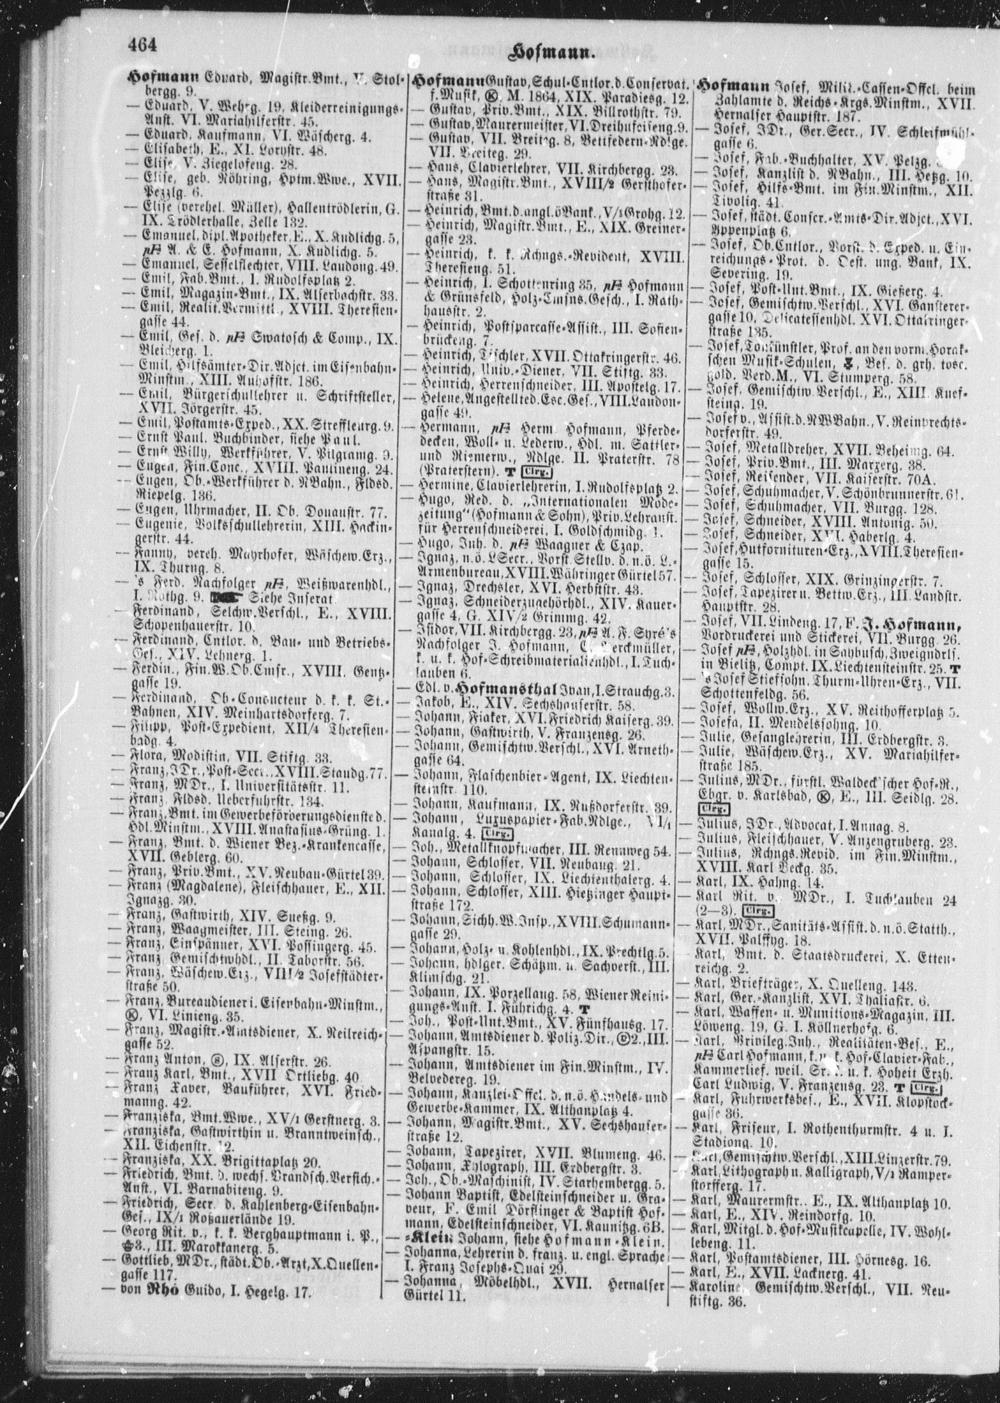 464
Hofmann.
Hofmann Eduard, Magistr.Bmt., V. Stol-
bergg. 9.
— Eduard, V. Wehrg. 19, Kleiderreinigungs-
Anst. VI. Mariahilferstr. 45.
— Eduard, Kaufmann, VI. Wäscherg. 4.
— Elisabeth, E., XI. Lorystr. 48.
— Elise, V. Ziegelofeng. 28.
— Elise, geb. Nöhring, Hptm.Wwe., XVII.
Pezzlg. 6.
— Elise (verehel. Müller), Hallentrödlerin, G.
IX. Trödlerhalle, Zelle 132.
— Emanuel, dipl.Apotheker, E., X. Kudlichg. 5,
A. & E. Hofmann, X. Kudlichg. 5.
— Emanuel, Sesselflechter, VIII. Laudong. 49.
— Emil, Fab.Bmt., I. Rudolfsplatz 2.
— Emil, Magazin-Bmt., IX. Alserbachstr. 33.
— Emil, Realit.Vermittl., XVIII. Theresien-
gasse 44.
— Emil, Ges. d. Swatosch & Comp., IX.
Bleicherg. 1.
— Emil, Hilfsämter-Dir.Adjct. im Eisenbahn-
Minstm., XIII. Auhofstr. 186.
— Emil, Bürgerschullehrer u. Schriftsteller,
XVII. Jörgerstr. 45.
— Emil, Postamts-Exped., XX. Streffleurg. 9.
— Ernst Paul, Buchbinder, siehe Paul.
— Ernst Willy, Werkführer, V. Pilgramg. 9.
— Eugen, Fin.Conc., XVIII. Paulineng. 24.
— Eugen, Ob.-Werkführer d. NBahn., Fldsd.
Riepelg. 136.
— Eugen, Uhrmacher, II. Ob. Donaustr. 77.
— Eugenie, Volksschullehrerin, XIII. Hackin-
gerstr. 44.
— Fanny, vereh. Mayrhofer, Wäschew.Erz.,
IX. Thurng. 8.
— 's Ferd. Nachfolger, Weißwarenhdl.,
I. Rothg. 9. Siehe Inserat
— Ferdinand, Selchw.Verschl., E., XVIII.
Schopenhauerstr. 10.
— Ferdinand, Cntlor. d. Bau- und Betriebs-
Ges., XIV. Lehnerg. 1.
— Ferdin., Fin.W.Ob.Cmsr., XVIII. Gentz-
gasse 19.
— Ferdinand, Ob-Conducteur d. k. k. St.-
Bahnen, XIV. Meinhartsdorferg. 7.
— Filipp, Post-Expedient, XII/4 Theresien-
badg. 4.
— Flora, Modistin, VII. Stiftg. 33.
— Franz, JDr., Post-Secr., XVIII. Staudg. 77.
— Franz, MDr., I. Universitätsstr. 11.
— Franz, Fldsd. Ueberfuhrstr. 134.
— Franz, Bmt. im Gewerbeförderungsdienste d.
Hdl.Minstm., XVIII. Anastasius-Grüng. 1.
— Franz, Bmt. d. Wiener Bez.-Krankencasse,
XVII. Geblerg. 60.
— Franz, Priv.Bmt., XV. Neubau-Gürtel 39.
— Franz (Magdalene), Fleischhauer, E., XII.
Ignazg. 30.
— Franz, Gastwirth, XIV. Sueßg. 9.
— Franz, Waagmeister, III. Steing. 26.
— Franz, Einspänner, XVI. Possingerg. 45.
— Franz, Gemischtwhdl., II. Taborstr. 56.
— Franz, Wäschew.Erz., VIII/2 Josefstädter-
straße 50.
— Franz, Bureaudiener i. Eisenbahn-Minstm.,
VI. Linieng. 35.
— Franz, Magistr.-Amtsdiener, X. Reilreich-
gasse 52.
— Franz Anton, IX. Alserstr. 26.
— Franz Karl, Bmt., XVII Ortliebg. 40
— Franz Xaver, Bauführer, XVI. Fried-
manng. 42.
— Franziska, Bmt.Wwe., XV/1 Gerstnerg. 3.
— Franziska, Gastwirthin u. Branntweinsch.,
XII. Eichenstr. 2.
— Franziska, XX. Brigittaplatz 20.
— Friedrich, Bmt. d. wechs. Brandsch.Versich.-
Anst., VI. Barnabiteng. 9.
— Friedrich, Secr. d. Kahlenberg-Eisenbahn-
Ges., IX/1 Roßauerlände 19.
— Georg Rit. v., k. k. Berghauptmann i. P.,
3., III. Marokkanerg. 5.
— Gottlieb, MDr., städt. Ob.-Arzt, X. Quellen-
gasse 117.
— von Rhó Guido, I. Hegelg. 17.
Hofmann Gustav, Schul-Cntlor. d. Conservat.
f. Musik, M. 1864, XIX. Paradiesg. 12.
— Gustav, Priv.Bmt., XIX. Billrothstr. 79.
— Gustav, Maurermeister, VI. Dreihufeiseng. 9.
— Gustav, VII. Breiteg. 8, Bettfedern-Ndlge.
VII. Breiteg. 29.
— Hans, Clavierlehrer, VII. Kirchbergg. 23.
— Hans, Magistr.Bmt., XVIII/2 Gersthofer-
straße 31.
— Heinrich, Bmt. d. angl.öBank., V/1 Grohg. 12.
— Heinrich, Magistr.Bmt., E., XIX. Greiner-
gasse 23.
— Heinrich, k. k. Rchngs.-Revident, XVIII.
Theresieng. 51.
— Heinrich, I. Schottenring 35, Hofmann
& Grünsfeld, Holz-Cmsns.Gesch., I. Rath-
hausstr. 2.
— Heinrich, Postsparcasse-Assist., III. Sofien-
brückeng. 7.
— Heinrich, Tischler, XVII. Ottakringerstr. 46.
— Heinrich, Univ.-Diener, VII. Stiftg. 33.
— Heinrich, Herrenschneider, III. Apostelg. 17.
— Helene, Angestellte d. Esc.Ges., VIII. Laudon-
gasse 49.
— Hermann, Herm. Hofmann, Pferde-
decken, Woll- u. Lederw., Hdl. m. Sattler-
und Riemerw., Ndlge. II. Praterstr. 78
(Praterstern). T Clrg.
— Hermine, Clavierlehrerin, I. Rudolfsplatz 2.
— Hugo, Red. d. „Internationalen Mode-
zeitung" (Hofmann & Sohn), Priv.Lehranst.
für Herrenschneiderei, I. Goldschmidg. 4.
— Hugo, Inh. d. Waagner & Czap.
— Ignaz, n.ö. LSecr., Vorst.Stellv. d. n.ö. L.-
Armenbureau, XVIII. Währinger Gürtel 57.
— Ignaz, Drechsler, XVI. Herbststr. 43.
— Ignaz, Schneiderzugehörhdl., XIV. Kauer-
gasse 4, G. XIV/2 Grimmg. 42.
— Isidor, VII. Kirchbergg. 23, A. F. Syré's
Nachfolger J. Hofmann, Leerckmüller,
k. u. k. Hof-Schreibmaterialienhdl., I. Tuch-
lauben 6.
— Edl. v. Hofmansthal Ivan, I. Strauchg. 3.
— Jakob, E., XIV. Sechshauserstr. 58.
— Johann, Fiaker, XVI. Friedrich Kaiserg. 39.
— Johann, Gastwirth, V. Franzensg. 26.
— Johann, Gemischtw.Verschl., XVI. Arneth-
gasse 64.
— Johann, Flaschenbier-Agent, IX. Liechten-
steinstr. 110.
— Johann, Kaufmann, IX. Nußdorferstr. 39.
— Johann, Luxuspapier-Fab.Ndlge., VI/1
Kanalg. 4. Clrg.
— Joh., Metallknopfmacher, III. Rennweg 54.
— Johann, Schlosser, VII. Neubaug. 21.
— Johann, Schlosser, IX. Liechtenthalerg. 4.
— Johann, Schlosser, XIII. Hietzinger Haupt-
straße 172.
— Johann, Sichh.W.Insp., XVIII. Schumann-
gasse 29.
— Johann, Holz- u. Kohlenhdl., IX. Prechtlg. 5.
— Johann, hdlger. Schätzm. u. Sachverst., III.
Klimschg. 21.
— Johann, IX. Porzellang. 58, Wiener Reini-
gungs-Anst. I. Führichg. 4. T
— Joh., Post-Unt.Bmt., XV. Fünfhausg. 17.
— Johann, Amtsdiener d. Poliz.Dir., 2., III.
Aspangstr. 15.
— Johann, Amtsdiener im Fin.Minstm., IV.
Belvedereg. 19.
— Johann, Kanzlei-Offcl. d. n.ö. Handels- und
Gewerbe-Kammer, IX. Althanplatz 4.
— Johann, Magistr.Bmt., XV. Sechshauser-
straße 12.
— Johann, Tapezirer, XVII. Blumeng. 46.
— Johann, Xylograph, III. Erdbergstr. 3.
— Joh., Ob.-Maschinist, IV. Starhembergg. 5.
— Johann Baptist, Edelsteinschneider u. Gra-
veur, F. Emil Dörflinger & Baptist Hof-
mann, Edelsteinschneider, VI. Kaunitzg. 6B.
— -Klein Johann, siehe Hofmann-Klein.
— Johanna, Lehrerin d. franz. u. engl. Sprache
I. Franz Josephs-Quai 29.
— Johanna, Möbelhdl., XVII. Hernalser
Gürtel 11.
Hofmann Josef, Milit.-Cassen-Offcl. beim
Zahlamte d. Reichs-Krgs.Minstm., XVII.
Hernalser Hauptstr. 187.
— Josef, JDr., Ger.Secr., IV. Schleifmühl-
gasse 6.
— Josef, Fab.-Buchhalter, XV. Pelzg.
— Josef, Kanzlist d. NBahn., III. Hetzg. 10.
— Josef, Hilfs-Bmt. im Fin.Minstm., XII.
Tivolig. 41.
— Josef, städt. Conscr.-Amts-Dir.Adjct., XVI.
Yppenplatz 6.
— Josef, Ob.Cntlor., Vorst. d. Exped. u. Ein-
reichungs-Prot. d. Oest. ung. Bank, IX.
Severing. 19.
— Josef, Post-Unt.Bmt., IX. Gießerg. 4.
— Josef, Gemischtw.Verschl., XVI. Gansterer-
gasse 10, Delicatessenhdl. XVI. Ottakringer-
straße 135.
— Josef, Tonkünstler, Prof. an den vorm. Horak-
schen Musik-Schulen, Bes. d. grh. tosc.
gold. Verd.M., VI. Stumperg. 58.
— Josef, Gemischtw.Verschl., E., XIII. Kuef-
steing. 19.
— Josef v., Assist. d. NWBahn., V. Reinprechts-
dorferstr. 49.
— Josef, Metalldreher, XVII. Beheimg. 64.
— Josef, Priv.Bmt., III. Marxerg. 38.
— Josef, Reisender, VII. Kaiserstr. 70A.
— Josef, Schuhmacher, V. Schönbrunnerstr. 61.
— Josef, Schuhmacher, VII. Burgg. 128.
— Josef, Schneider, XVIII. Antonig. 50.
— Josef, Schneider, XVI. Haberlg. 4.
— Josef, Hutfornituren-Erz., XVIII. Theresien-
gasse 15.
— Josef, Schlosser, XIX. Grinzingerstr. 7.
— Josef, Tapezirer u. Bettw.Erz., III. Landstr.
Hauptstr. 28.
— Josef, VII. Lindeng. 17, F. J. Hofmann,
Vordruckerei und Stickerei, VII. Burgg. 26.
— Josef, Holzhdl. in Saybusch, Zweigndrls.
in Bielitz, Compt. IX. Liechtensteinstr. 25. T
— 's Josef Stiefsohn, Thurm-Uhren-Erz., VII.
Schottenfeldg. 56.
— Josef, Wollw.Erz., XV. Reithofferplatz 5.
— Josefa, II. Mendelssohng. 10.
— Julie, Gesanglehrerin, III. Erdbergstr. 3.
— Julie, Wäschew.Erz., XV. Mariahilfer-
straße 185.
— Julius, MDr., fürstl. Waldeck'scher Hof-R.,
Ehgr. v. Karlsbad, E., III. Seidlg. 28.
Clrg.
— Julius, JDr., Advocat, I. Annag. 8.
— Julius, Fleischhauer, V. Anzengruberg. 23.
— Julius, Rchngs.Revid. im Fin.Minstm.,
XVIII. Karl Beckg. 35.
— Karl, IX. Hahng. 14.
— Karl Rit. v. MDr., I. Tuchlauben 24
(2—3). Clrg.
— Karl, MDr., Sanitäts-Assist. d. n.ö. Statth.,
XVII. Palffyg. 18.
— Karl, Bmt. d. Staatsdruckerei, X. Etten-
reichg. 2.
— Karl, Briefträger, X. Quelleng. 143.
— Karl, Ger.-Kanzlist, XVI. Thaliastr. 6.
— Karl, Waffen- u. Munitions-Magazin, III.
Löweng. 19, G. I. Köllnerhofg. 6.
— Karl, Privileg.Inh., Realitäten-Bes., E.,
Carl Hofmann, k. u. k. Hof-Clavier-Fab.,
Kammerlief. weil. Sr. k. u. k. Hoheit Erzh.
Carl Ludwig, V. Franzensg. 23. T Clrg.
— Karl, Fuhrwerksbes., E., XVII. Klopstock-
gasse 36.
— Karl, Friseur, I. Rothenthurmstr. 4 u. I.
Stadiong. 10.
— Karl, Gemischtw.Verschl., XIII. Linzerstr. 79.
— Karl, Lithograph u. Kalligraph, V/1 Ramper-
storfferg. 17.
— Karl, Maurermstr., E., IX. Althanplatz 10.
— Karl, E., XIV. Reindorfg. 10.
— Karl, Mitgl. d. Hof-Musikcapelle, IV. Wohl-
lebeng. 11.
— Karl, Postamtsdiener, III. Hörnesg. 16.
— Karl, E., XVII. Lacknerg. 41.
— Karoline, Gemischtw.Verschl., VII. Neu-
stiftg. 36.